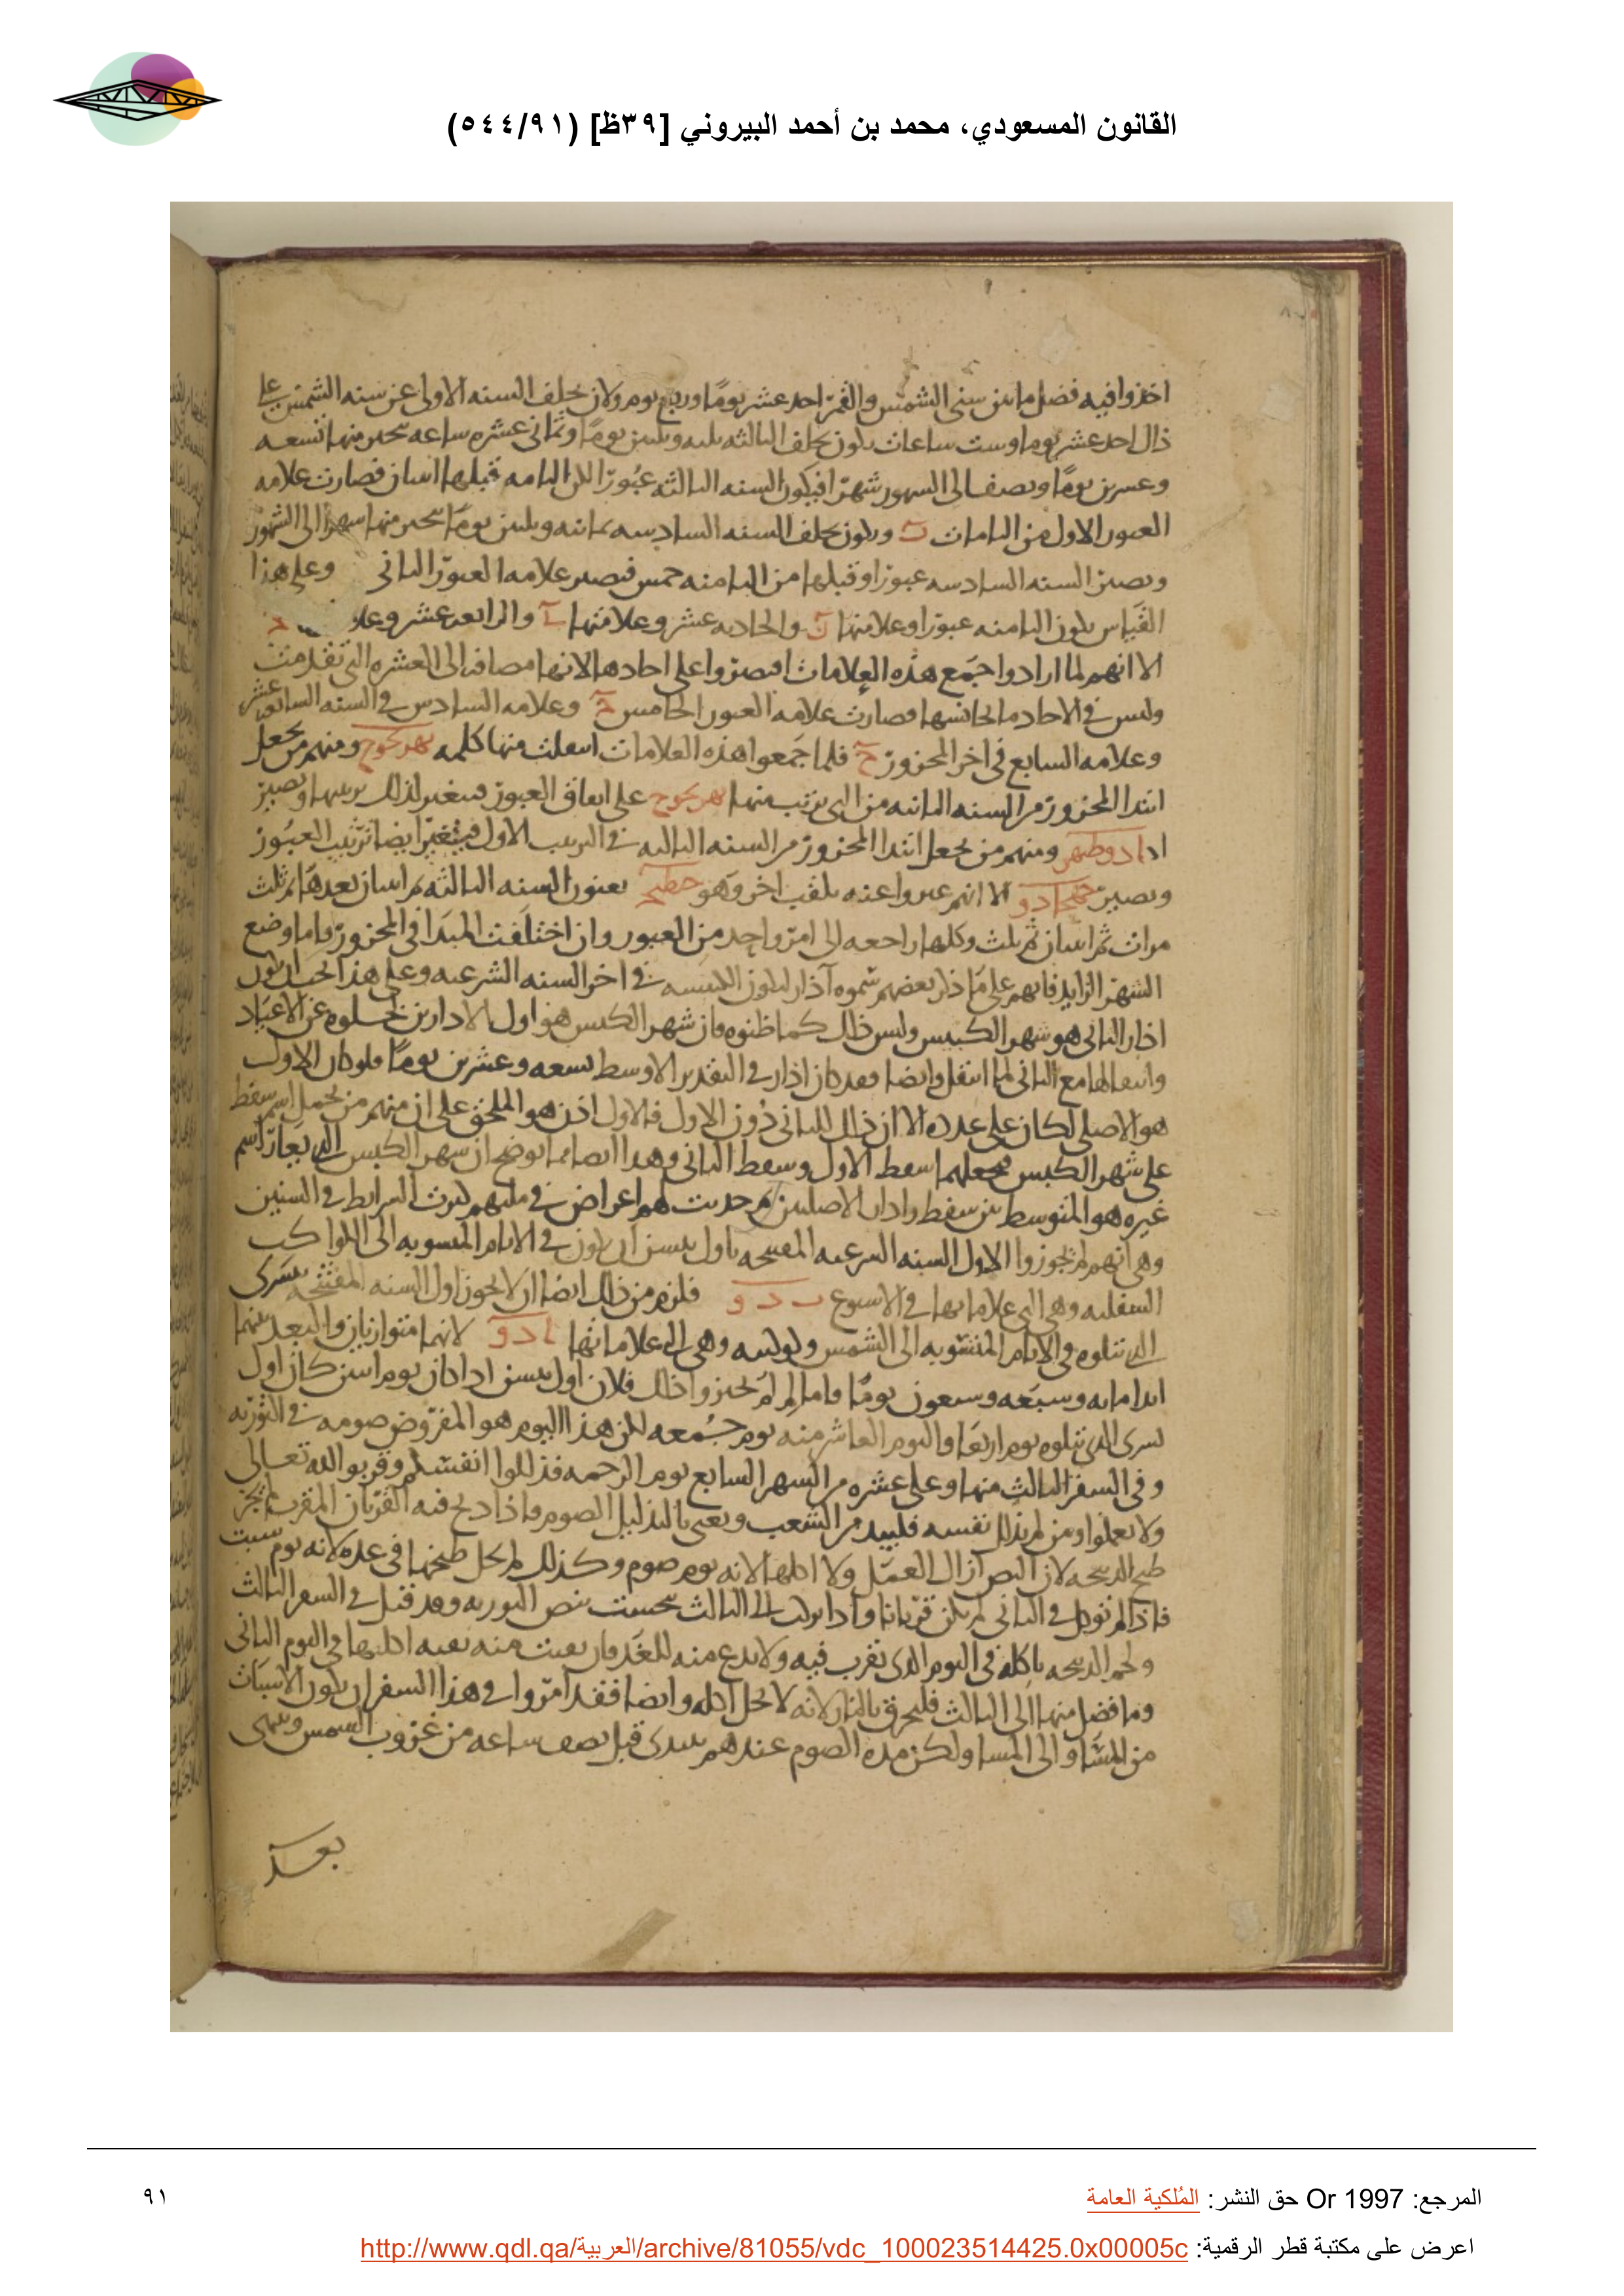 القانون المسعودي، محمد بن أحمد البيروني [٣٩ظ] (٥٤٤/٩١)
اخذوا فيه فضل ما بين سنى الشمس والقمر احد عشر يومًا وربع يوم ولان تخلف السنه الاولى عن سنه الشمس على
ذلك احد عشر يوما وست ساعات يكون تخلف الثالثه ثلثه وثلثين يومًا وثمانى عشره ساعه ينجبر منها تسعه
وعشرين يومًا ونصف الى الشهور شهرًا فيكون السنه الثالثه عبورًا لكن التامه قبلها اثنان فصارت علامه
العبور الاول من التامات ب ويكون تخلف السنه السادسه ثمانيه وثلثين يومًا ينجبر منها شهرا الى الشهور
وتصير السنه السادسه عبورًا وقبلها من التامه خمس فتصير علامه العبور الثانى وعلى هذا
القياس يكون الثامنه عبورًا وعلامتها ز والحاديه عشر وعلامتها ى والرابعه عشر
الا انهم لما ارادوا جمع هذه العلامات اقتصروا على احادها لانها مضافه الى العشره التى تقدمت
وليس فى الاحاد ما يجانسها فصارت علامه العبور الخامس و علامه السادس فى السنه السابعه عشر
وعلامه السابع فى اخر المحزور ح فلما جمعوا هذه العلامات منها كلمه بهزيجوح ومنهم من يجعل
ابتدا المحزور من السنه الثانيه من التى ترتب منها بهزيجوح على اتفاق العبور فتغير لذلك ترتيبها وتصير
ادادوطبهز ومنهم من يجعل ابتدا المحزور من السنه الثالثه فى الترتيب الاول فيتغير ايضا ترتيب العبور
وتصير الا انهم عبروا عنه بلقب اخر وهو يعنون السنه الثالثه ثم اثنان بعدها ثم ثلث
مرات ثم اثنان ثم ثلث وكلها راجعه الى امر واحد من العبور وان اختلفت المبدا فى المحزور واما وضع
الشهر الزايد فانهم على ما ذكر بعضهم سموه آذار ليكون الكبيسه فى اخر السنه الشرعيه وعلى هذا يجب ان يكون
اذار الثانى هو شهر الكبيس وليس ذلك كما ظنوه فان شهر الكبس هو اول الادارين لخلوه عن الاعياد
وانتقالها مع الثانى لما انتقل وايضا فقد كان اذار فى التقدير الاوسط تسعه وعشرين يومًا فلو كان الاول
هو الاصلى لكان على عدده الا ان ذلك للثانى دون الاول فالاول اذن هو الملحق على ان منهم من يحمل اسم سفط
على شهر الكبس فيجعلهما اسفط الاول وسفط الثانى وهذا ايضا مما يوضح ان شهر الكبس الذى يعار اسم
غيره هو المتوسط بين سفط واذار الاصليين ثم حدثت لهم اعراض فى ملتهم كثرت الشرايط فى السنين
وهى انهم لم يجوزوا لاول السنه الشرعيه المفتتحه باول نيسن ان يكون فى الايام المنسوبه الى الكواكب
السفليه وهى التى علاماتها فى الاسبوع ب د و فلزم من ذلك ايضا ان لا يجوز اول السنه المفتتحه بتشرى
الذى يتلوه فى الايام المنسوبه الى الشمس وكوكبيه وهى التى علاماتها ا د و لانهما متوازيان والبعد بينهما
ابدا مايه وسبعه وسبعون يومًا واما لم لم يجيزوا ذلك فلان اول نيسن اذا كان يوم اثنين كان اول
تشرى الذى يتلوه يوم اربعا واليوم العاشر منه يوم جمعه لكن هذا اليوم هو المفروض صومه فى التوريه
وفى السفر الثالث منها وعلى عشره من الشهر السابع يوم الرحمه فذللوا انفسكم وقربوا لله تعالى
ولا تعملوا ومن لم يذلل نفسه فليبيد من الشعب ويعنى بالتذليل الصوم فاذا ذبح فيه القربان المقرب لم يجز
طبخ الذبيحه لان النص ازال العمل ولا اكلها لانه يوم صوم وكذلك لم يحل طبخها فى غده لانه يوم سبت
فاذا لم توكل فى الثانى لم يكن قربانا واذا تركت الى الثالث بنص التوريه وقد قيل فى السفر الثالث
ولحم الذبيحه ياكله فى اليوم الذى تقرب فيه ولا يدع منه للغد فان بقيت منه بقيه اكلها فى اليوم الثانى
وما فضل منها الى الثالث فليحرق بالنار لانه لا يحل اكله وايضا فقد امروا فى هذا السفر ان يكون الاسبات
من المسا والى المسا ولكن مده الصوم عندهم يبتدى قبل نصف ساعه من غروب الشمس وينتهى
بعد
المرجع: Or 1997 حق النشر: المُلكية العامة
٩١
اعرض على مكتبة قطر الرقمية: http://www.qdl.qa/العربية/archive/81055/vdc_100023514425.0x00005c